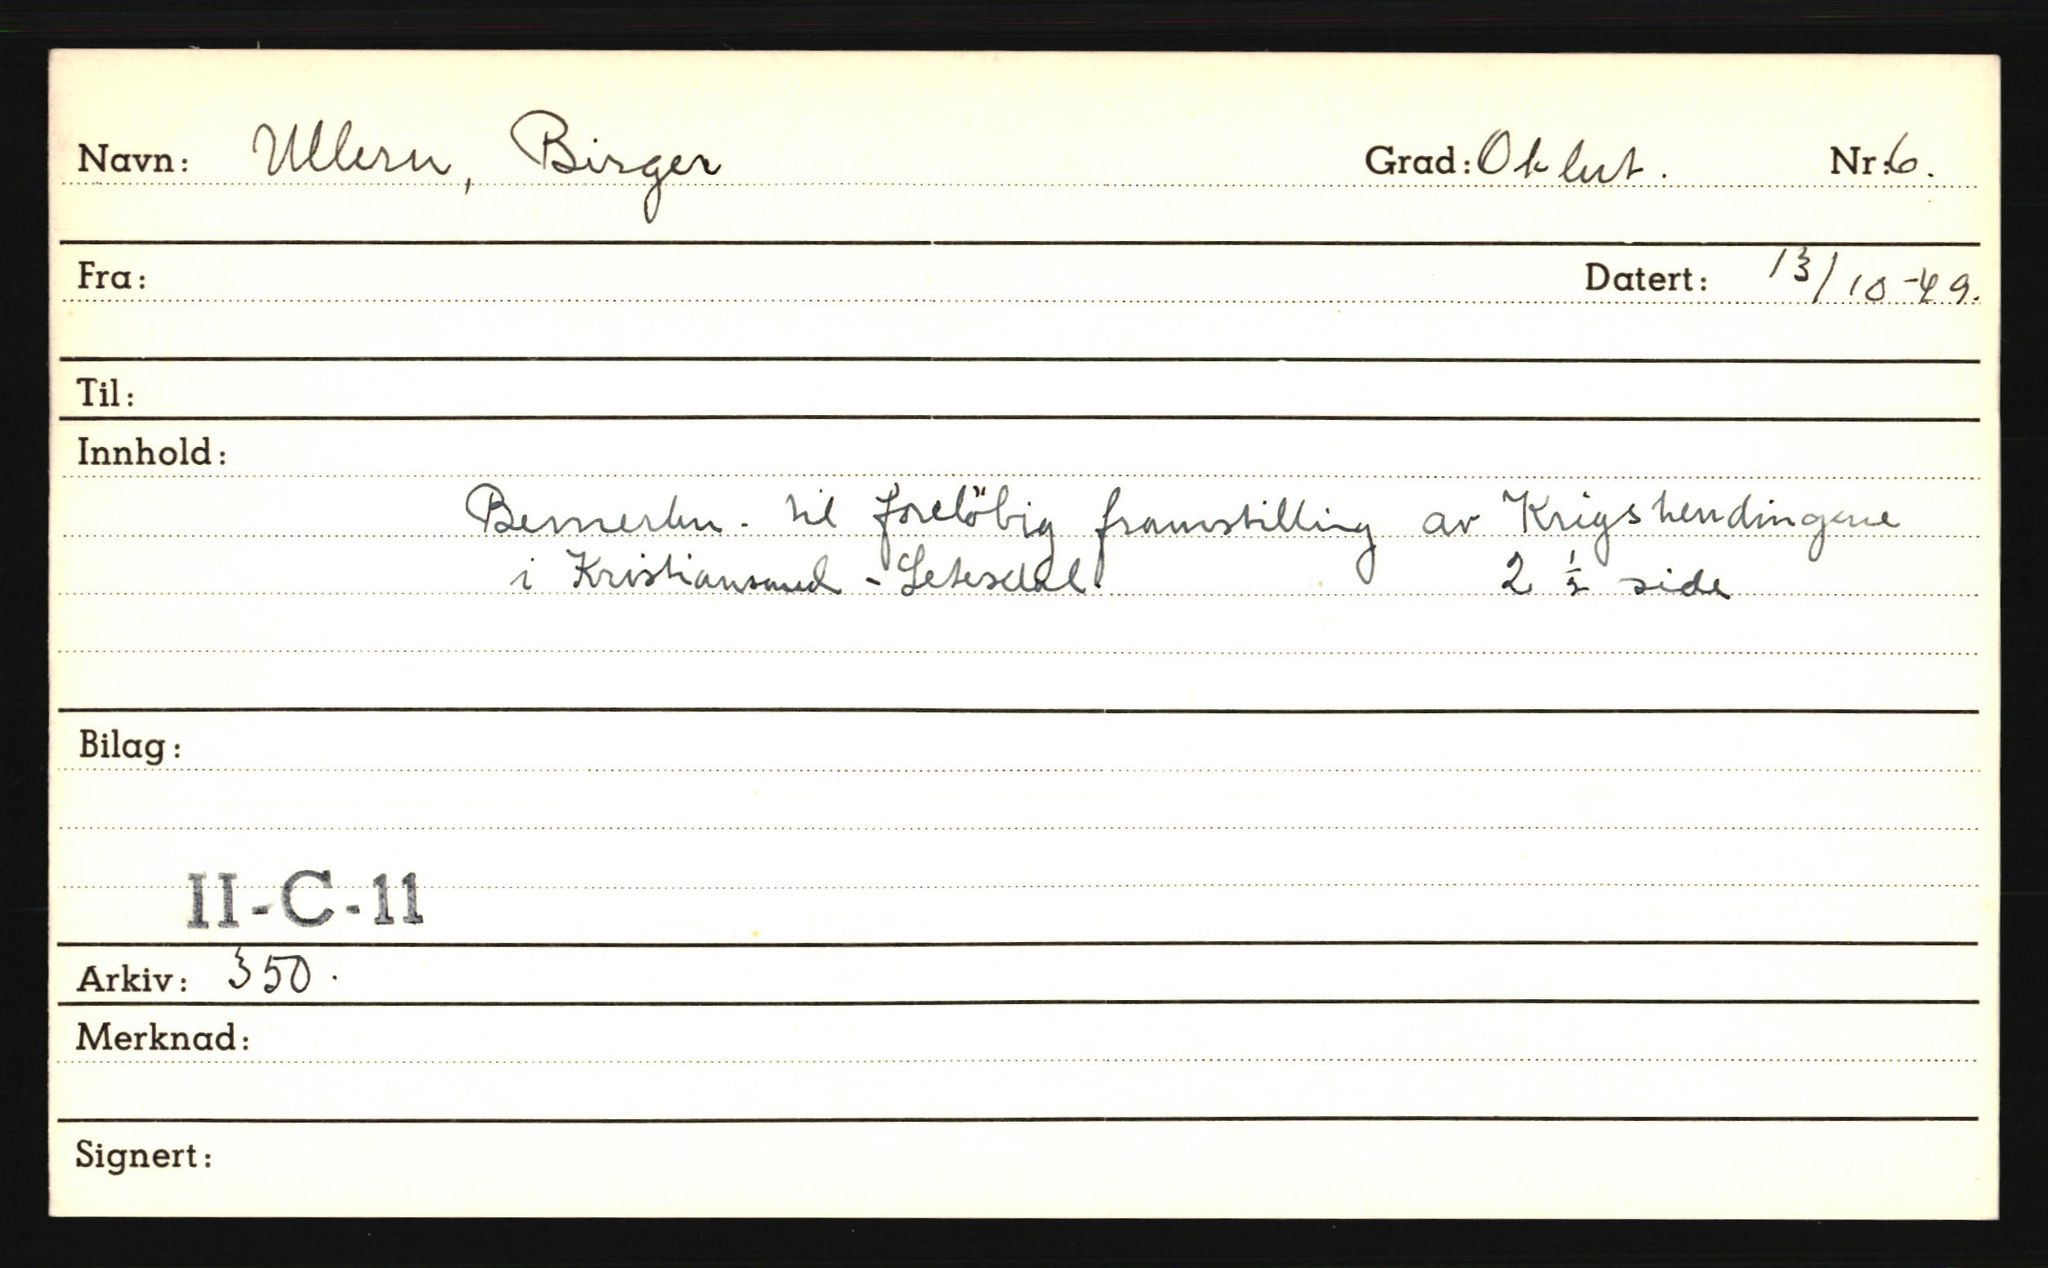 Navn: Ullern, Birger Grad: Oblnt. Nr: 6.
Fra: Datert: 13/10-49.
Til:
Innhold:
Bemerkn. til foreløbig framstilling av Krigshendingene
i Kristiansand - Setesdal. 2 1/2 side
Bilag:
II-C-11
Arkiv: 350.
Merknad:
Signert: